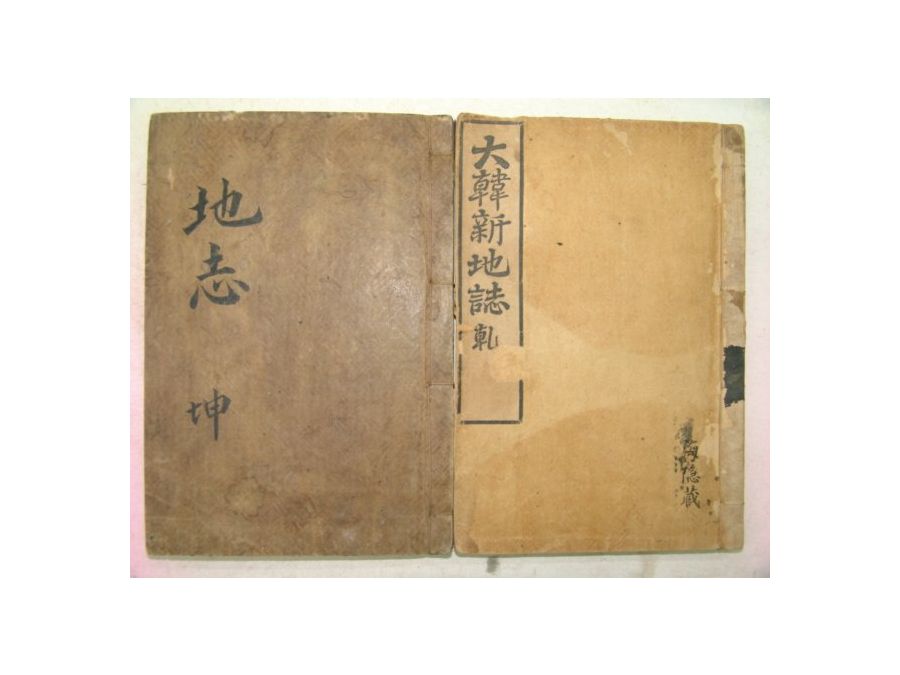 大韓新地誌 乹
隱藏
地志 坤